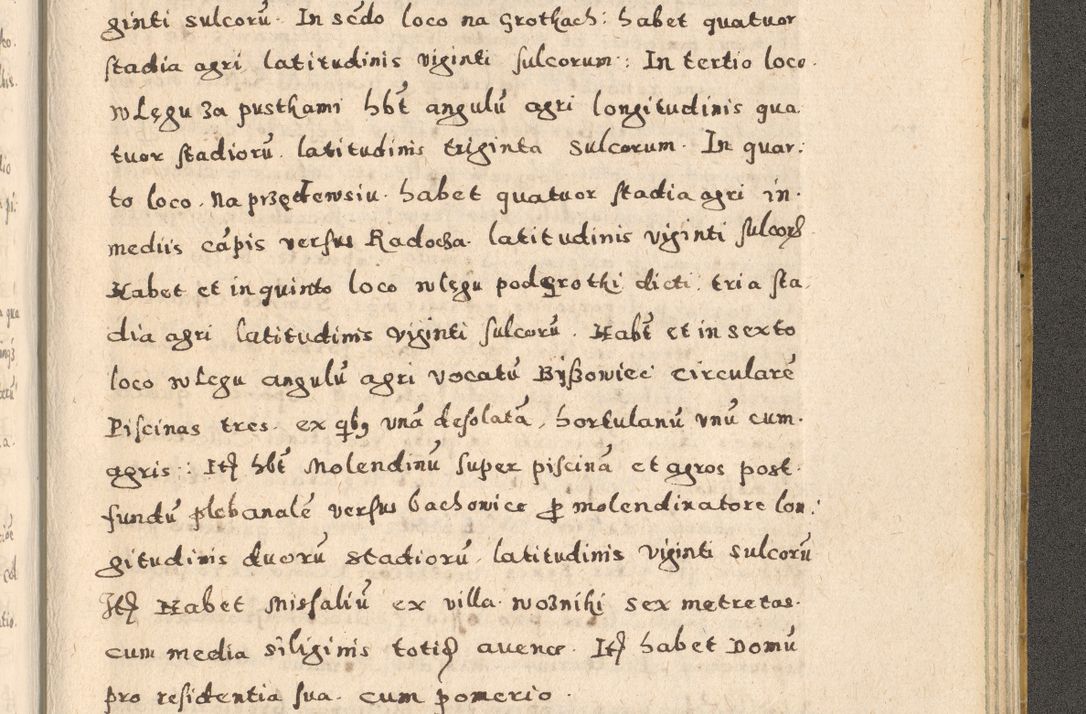 ginti sulcorū. In scdo loco na Grotkach: habet quatuor
stadia agri latitudinis viginti sulcorum: In tertio loco.
w Lęgu za pusthami hbt angulū agri longitudinis qua
tuor stadiorū. latitudinis triginta Sulcorum. In quar:
to loco. Na przędewsiu. habet quatuor stadia agri in.
mediis cāpis versus Radocza. latitudinis viginti sulcorꝝ
Habet et in quinto loco w lęgu podgrotki dicti. tria sta
dia agri latitudinis viginti sulcorū. Habt et in sexto
loco w Lęgu angulū agri vocatū Byßowiec circularē
Piscinas tres. ex qbꝫ unā desolatā, hortulanū vnū cum.
agris: Itꝫ hbt Molendinū super piscinā et agros post.
fundū plebanalē versus bachowice ꝓ molendinatore lon:
gitudinis duorū stadiorū. latitudinis viginti sulcorū
Itꝫ Habet Missaliū ex villa. woznihi sex metretas.
cum media siliginis totiꝫ avence. Itꝫ habet Domū
pro residentia sua. cum pomerio.